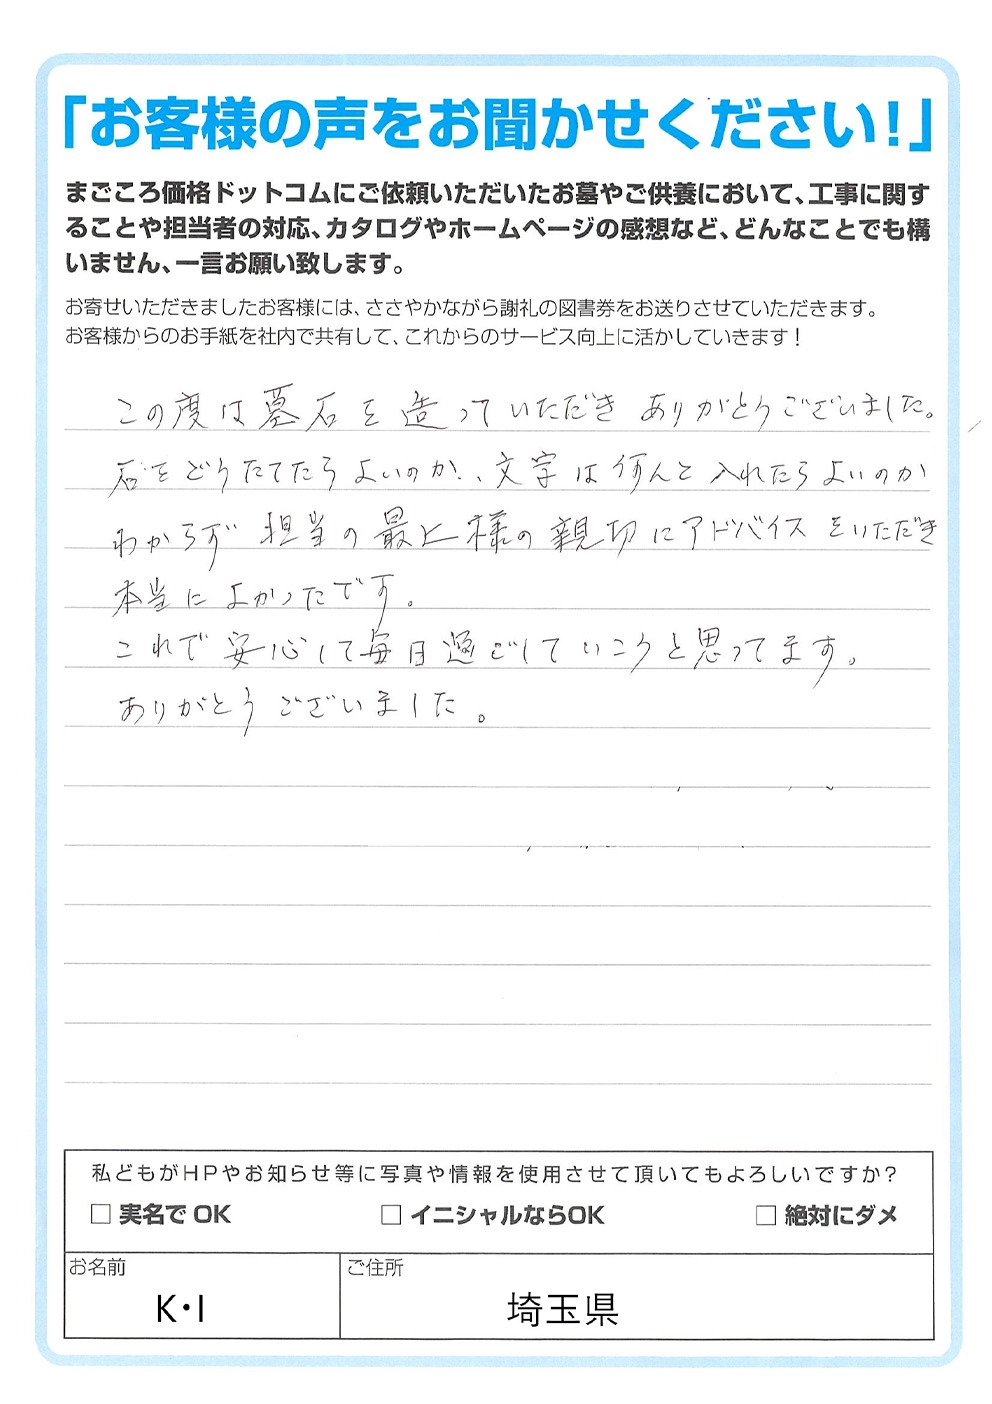 「お客様の声をお聞かせください！」
まごころ価格ドットコムにご依頼いただいたお墓やご供養において、工事に関す
ることや担当者の対応、カタログやホームページの感想など、どんなことでも構
いません、一言お願い致します。
お寄せいただきましたお客様には、ささやかながら謝礼の図書券をお送りさせていただきます。
お客様からのお手紙を社内で共有して、これからのサービス向上に活かしていきます！
この度は墓石を造っていただき ありがとうございました。
石をどうたてたらよいのか、文字は何んと入れたらよいのか
わからず 担当の最上様の親切にアドバイスをいただき
本当によかったです。
これで安心して毎日過ごしていこうと思ってます。
ありがとうございました。
私どもがHPやお知らせ等に写真や情報を使用させて頂いてもよろしいですか？
□ 実名でOK □ イニシャルならOK □ 絶対にダメ
お名前 ご住所
K・I 埼玉県